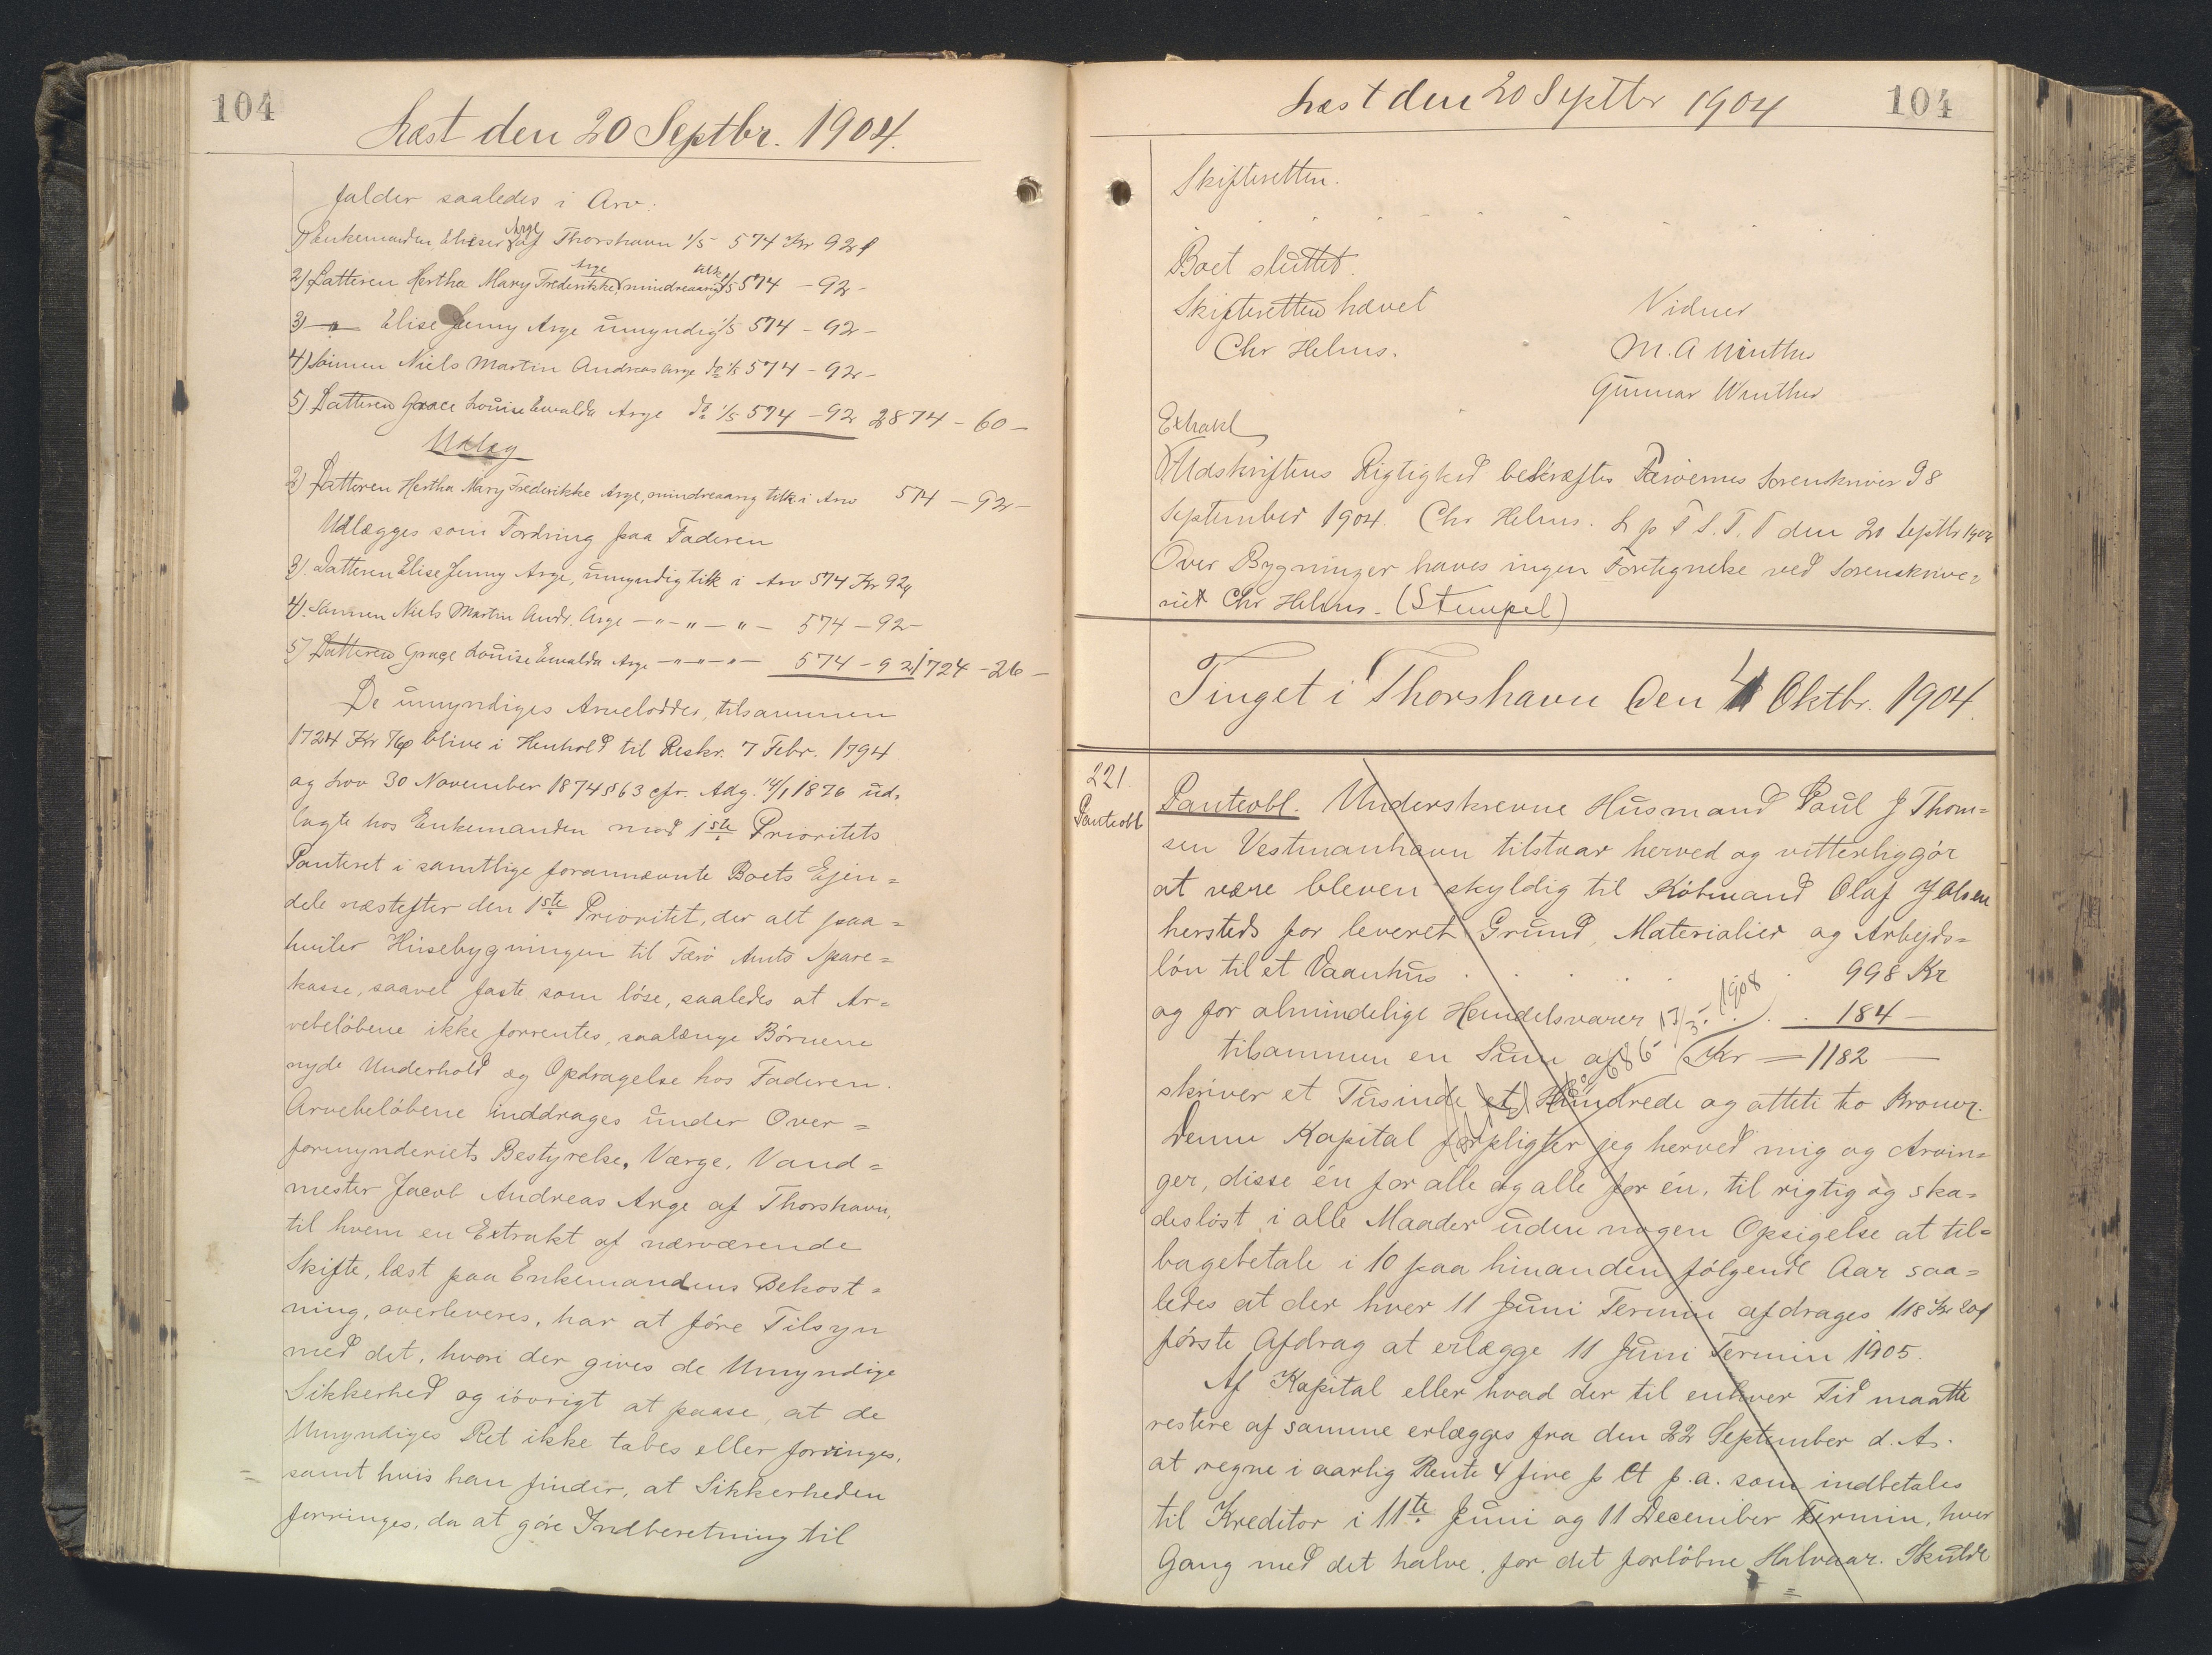 104
Læst den 20 Septbr. 1904.
falder saaledes i Arv:
1) Enkemanden Elieser Arge af Thorshavn 1/5 574 Kr 92
2) Datteren Hertha Mary Frederikke Arge mindreaarig 1/5 574 - 92 -
3) - " - Elise Jenny Arge umyndig 1/5 574 - 92 -
4) Sønnen Niels Martin Andreas Arge do 1/5 574 - 92 -
5) Datteren Grace Louise Ewalda Arge do 1/5 574 - 92 2874 - 60 -
Udlæg
2) Datteren Hertha Mary Frederikke Arge, mindreaarig tilk. i Arv 574 - 92 -
Udlægges som Fordring paa Faderen
3). Datteren Elise Jenny Arge, umyndig tilk i Arv 574 Kr 92
4). Sønnen Niels Martin Andr. Arge - " - " - " - 574 - 92 -
5) Datteren Grace Louise Ewalda Arge - " - " - " - 574 - 92 1724 - 26 -
De umyndiges Arvelodder, tilsammen
1724 Kr 76 blive i Henhold til Reskr. 7 Febr. 1794
og Lov 30 November 1874 § 63 cfr. Adg. 14/1 1876 ud-
lagte hos Enkemanden mod 1ste Prioritets
Panteret i samtlige forannævnte Boets Ejen=
dele næstefter den 1ste Prioritet, der alt paa=
hviler Husebygningen til Færø Amts Spare=
kasse, saavel faste som løse, saaledes at Ar=
vebeløbene ikke forrentes, saalænge Børnene
nyde Underhold og Opdragelse hos Faderen.
Arvebeløbene inddrages under Over=
formynderiets Bestyrelse. Værge, Vand=
mester Jacob Andreas Arge af Thorshavn,
til hvem en Extrakt af nærværende
Skifte, læst paa Enkemandens Bekost=
ning, overleveres, har at føre Tilsyn
med det, hvori der gives de Umyndige
Sikkerhed og iøvrigt at paase, at de
Umyndiges Ret ikke tabes eller forringes,
samt hvis han finder, at Sikkerheden
forringes, da at gøre Indberetning til
Læst den 20 Septbr 1904
104
Skifteretten.
Boet sluttet.
Skifteretten hævet Vidner
Chr Helms. M. A Winther
Gunnar Winther
Extrakt
Udskriftens Rigtighed bekræftes Færøernes Sorenskriver 98
September 1904. Chr Helms. L p T S. T. T den 20 Septbr 1904
Over Bygninger haves ingen Fortegnelse ved Sorenskrive=
riet Chr Helms. (Stempel)
Tinget i Thorshavn den 4 Oktbr. 1904.
221.
Panteobl
Panteobl. Underskrevne Husmand Poul J Thom=
sen Vestmanhavn tilstaar herved og vitterliggør
at være bleven skyldig til Købmand Olaf J Olsen
hersteds for leveret Grund, Materialier og Arbejds=
løn til et Vaanhus . . . . . 998 Kr
og for almindelige Handelsvarer . . . 184 -
tilsammen en Sum af Kr - 1182 -
13/5. 1908
skriver et Tusinde et Hundrede og ottete to Kroner.
Denne Kapital forpligter jeg herved mig og Arvin=
ger, disse én for alle og alle for én, til rigtig og ska=
desløst i alle Maader uden nogen Opsigelse at til=
bagebetale i 10 paa hinanden følgende Aar saa=
ledes at der hver 11 Juni Termin afdrages 118 Kr 20
første Afdrag at erlægge 11 Juni Termin 1905.
Af Kapital eller hvad der til enhver Tid maatte
restere af samme erlægges fra den 22 September d. A.
at regne i aarlig Rente 4 fire p Ct p. a. som indbetales
til Kreditor i 11te Juni og 11 December Termin, hver
Gang med det halve, for det forløbne Halvaar. Skulde